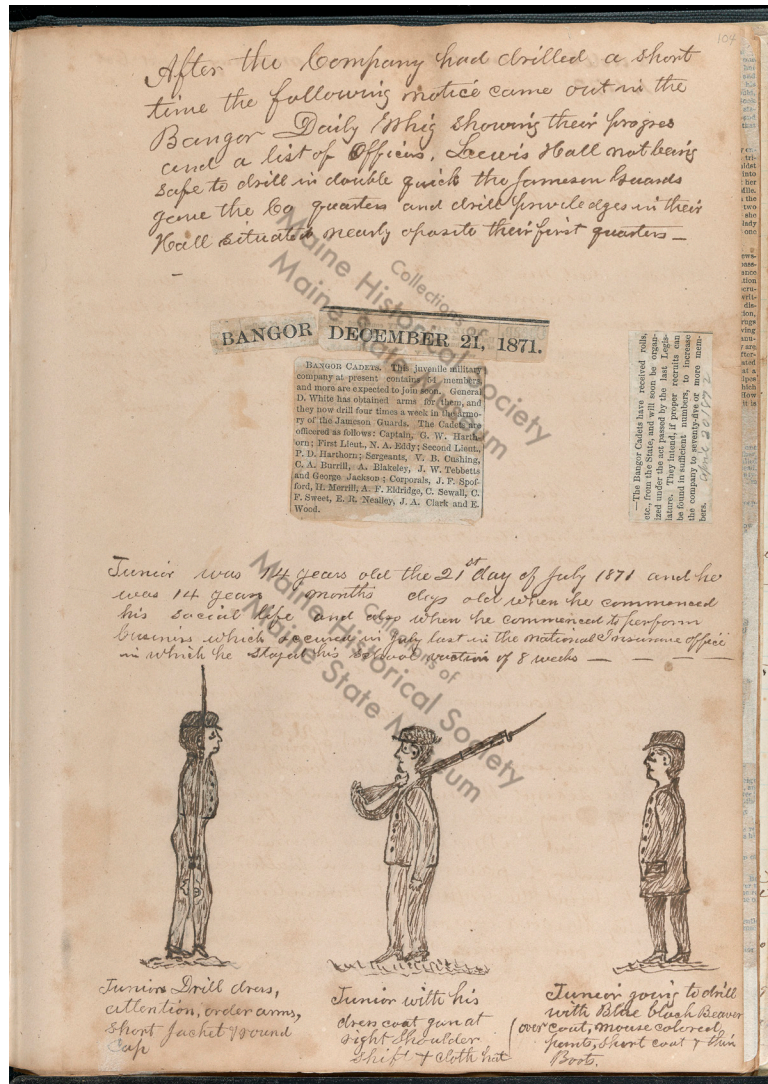 104
After the Company had drilled a short
time the following notice came out in the
Bangor Daily Whig showing their progres
and a list of Officers. Lewis Hall not being
safe to drill in double quick the Jameson Guards
gave the Co quarters and drill priviledges in their
Hall situated nearly oposite their first quarters —
—
BANGOR DECEMBER 21, 1871.
BANGOR CADETS. This juvenile military
company at present contains 54 members
and more are expected to join soon. General
D. White has obtained arms for them, and
they now drill four times a week in the armo-
ry of the Jameson Guards. The Cadets are
officered as follows: Captain, G. W. Harth-
orn; First Lieut., N. A. Eddy; Second Lieut.,
P. D. Harthorn; Sergeants, V. B. Cushing,
C. A. Burrill, A. Blakeley, J. W. Tebbetts
and George Jackson; Corporals, J. F. Spof-
ford, H. Merrill, A. F. Eldridge, C. Sewall, C.
F. Sweet, E. R. Nealley, J. A. Clark and E.
Wood.
—The Bangor Cadets have received rolls,
etc., from the State, and will soon be organ-
ized under the act passed by the last Legis-
lature. They intend, if proper recruits can
be found in sufficient numbers, to increase
the company to seventy-five or more mem-
bers. April 20 1872
Junior was 14 years old the 21st day of July 1871 and he
was 14 years months days old when he commenced
his social life and also when he commenced to perform
business which occured in July last in the National Insurance office
in which he stayed his school vacation of 8 weeks — — — —
Juniors Drill dress,
attention, order arms,
short Jacket & round
Cap
Junior with his
dress coat gun at
right shoulder
shift & cloth hat
Junior going to drill
with Blue black Beaver
over coat, mouse colored
pants, short coat & thin
Boots.
Collections of
Maine Historical Society
Maine State Museum
Collections of
Maine Historical Society
Maine State Museum